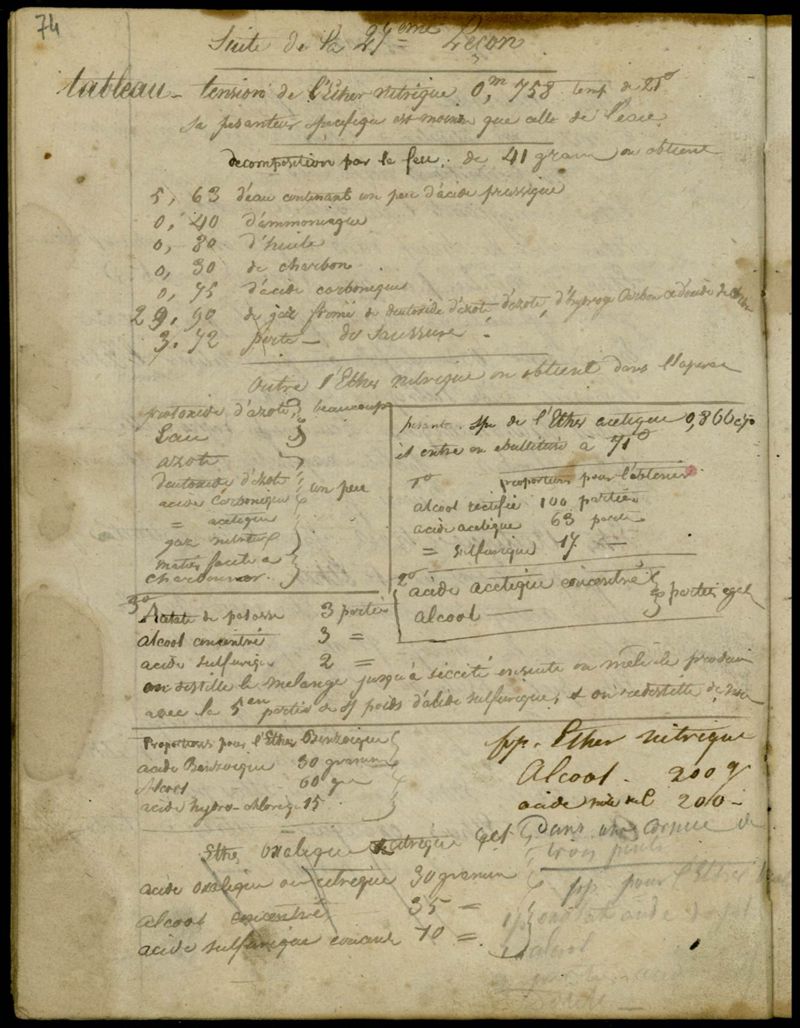 74
Suite de la 27eme Leçon
tableau - tension de l'Ether nitrique 0,m 758 temp de 21°
sa pesanteur specifique est moins que celle de l'eau
decomposition par le feu. de 41 gram on obtient
5, 63 d'eau contenant un peu d'acide prussique
0, 40 d'ammoniaque
0, 80 d'huile
0, 30 de charbon
0, 75 d'acide carbonique
29, 90 de gaz formé de deutoxide d'azote, d'azote, d'hydrog Carbon et d'oxide de
3. 72 perte - de Saussure.
Outre l'Ether nitrique on obtient dans l'opera
protoxide d'azote } beaucoup
Eau
azote
deutoxide d'azote } un peu
acide Carbonique
= acetique
gaz nitreux
matier facile a
charbonner.
pesante. spe de l'Ether acetique 0,866
il entre en ebullition à 71°
1° proportions pour l'obtenir
alcool rectifié 100 parties
acide acetique 63 partie
= sulfurique 17 —
2° acide acetique concentré } parties egal
alcool —
3° Acetate de potasse 3 parties
alcool concentré 3 =
acide sulfuriq 2 =
on distille le melange jusqu'à siccité ensuite on mêle le produit
avec la 5en partie de s/ poids d'acide sulfurique, et on redistille
Proportions pour l'Ether Benzoique
acide Benzoique 30 gramm
Alcool 60 gr
acide hydro-chloriq 15
pp. Ether nitrique
Alcool. 200 g
acide 200 -
Dans une Cornue de
trois pints
Ether Oxalique citrique
acide oxalique ou citrique 30 gramm
alcool concentré 35 =
acide sulfurique concent 10 =
pp pour l'Ether
alcool